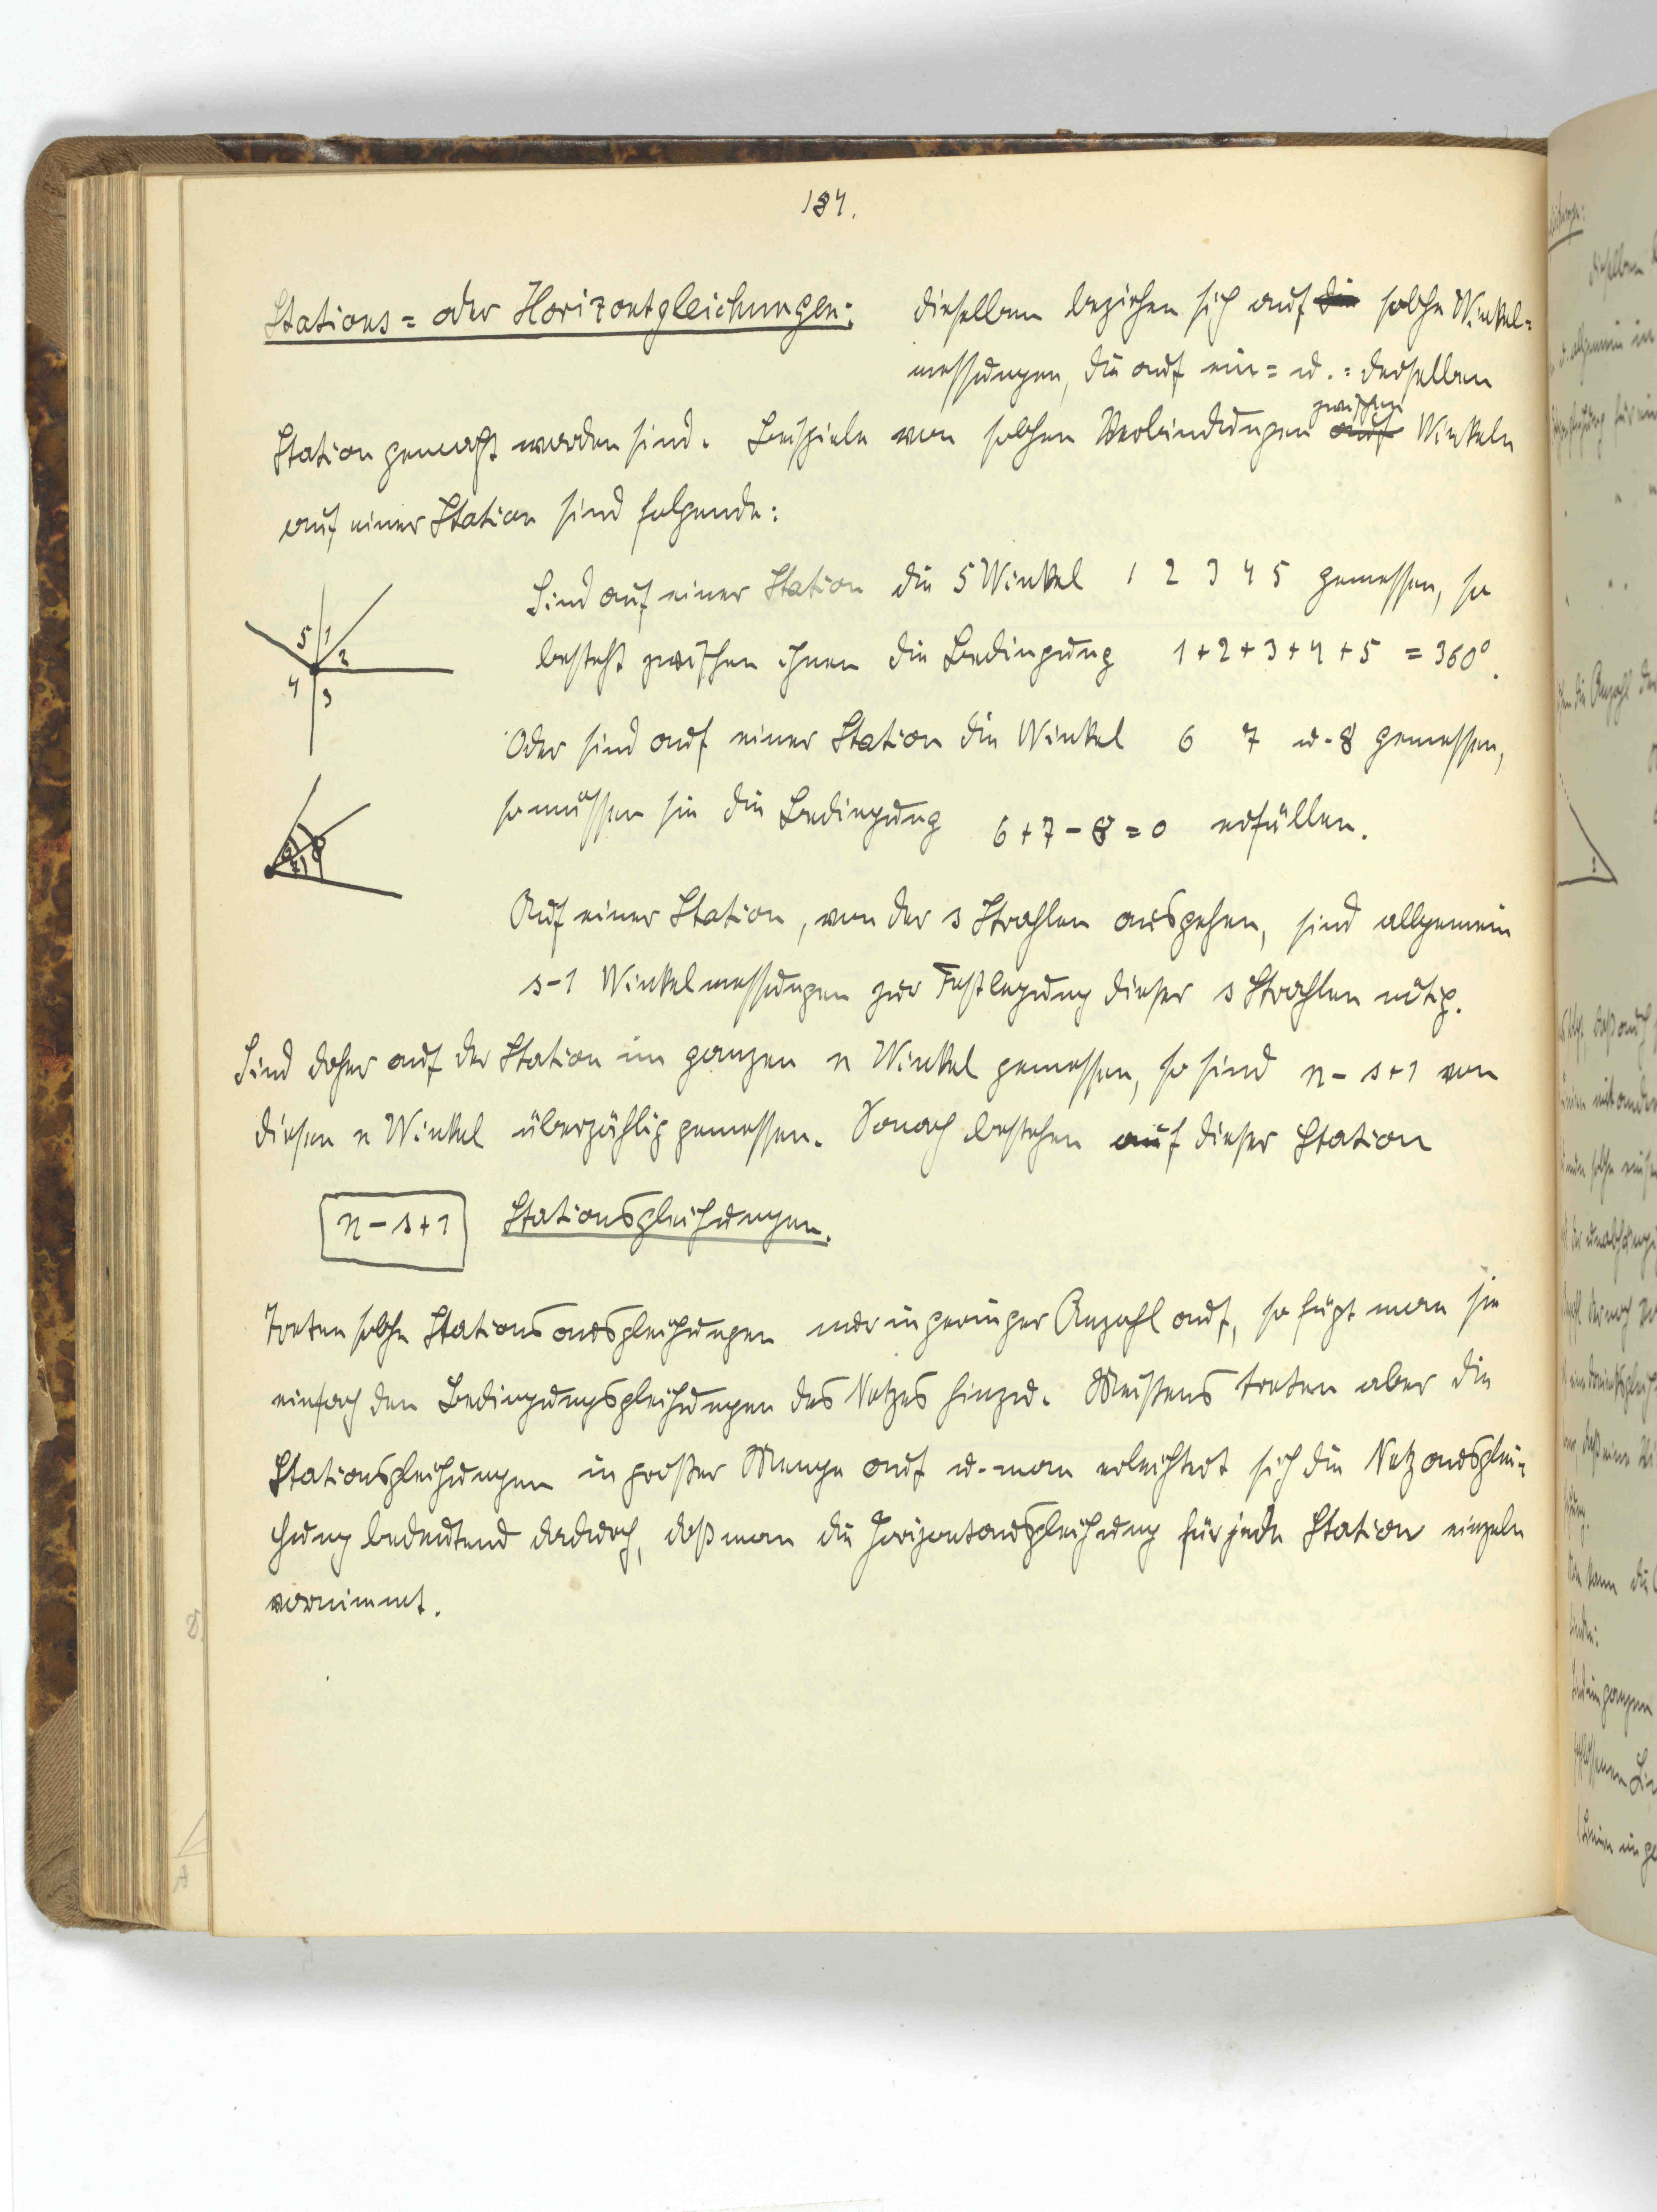 184.
Stations= oder Horizontgleichungen: dieselben beziehen sich auf die solche Winkel=
messungen, die auf ein= u. =derselben
zwischen
Station gemacht worden sind. Beispiele von solchen Verbindungen auf Winkeln
auf einer Station sind folgende:
Sind auf einer Station die 5 Winkel 1 2 3 4 5 gemessen, so
besteht zwischen ihnen die Bedingung 1+2+3+4+5 = 360°.
5 1 2 4 3
Oder sind auf einer Station die Winkel 6 7 u. 8 gemessen,
so müssen sie die Bedingung 6+7-8=0 erfüllen.
6 7 8
Auf einer Station, von der s Strahlen ausgehen, sind allgemein
s-1 Winkelmessungen zur Festlegung dieser s Strahlen nötig.
Sind daher auf der Station im ganzen n Winkel gemessen, so sind n-s+1 von
diesen n Winkel überzählig gemessen. Sonach bestehen auf dieser Station
n-s+1 Stationsgleichungen.
Treten solche Stationsausgleichungen nur in geringer Anzahl auf, so fügt man sie
einfach den Bedingungsgleichungen des Netzes hinzu. Meistens treten aber die
Stationsgleichungen in großer Menge auf u. man erleichtert sich die Netzausglei=
chung bedeutend dadurch, daß man die Horizontausgleichung für jede Station einzeln
vornimmt.